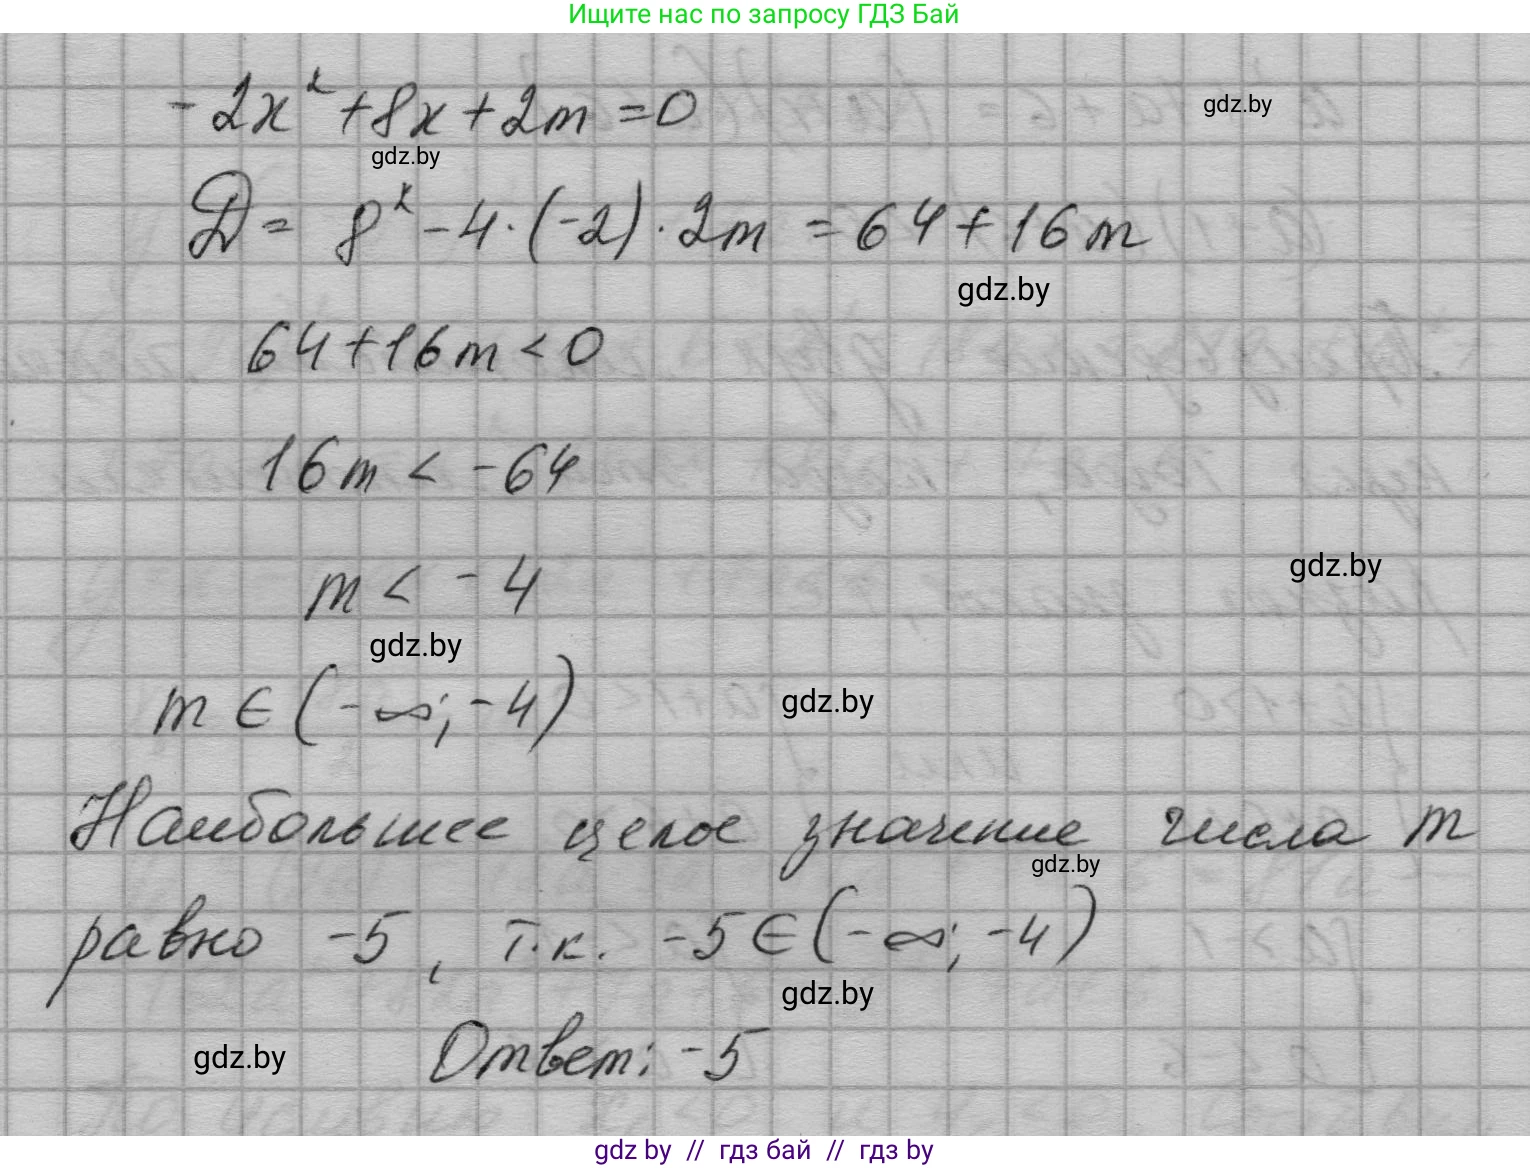 Ищите нас по запросу ГДЗ Бай
-2x² + 8x + 2m = 0
gdz.by
gdz.by
D = 8² - 4·(-2)·2m = 64 + 16m
gdz.by
64 + 16m < 0
16m < -64
gdz.by
m < -4
gdz.by
m ∈ (-∞; -4)
gdz.by
Наибольшее целое значение числа m
gdz.by
равно -5, т.к. -5 ∈ (-∞; -4)
gdz.by
gdz.by
Ответ: -5
gdz by // гдз бай // гдз by